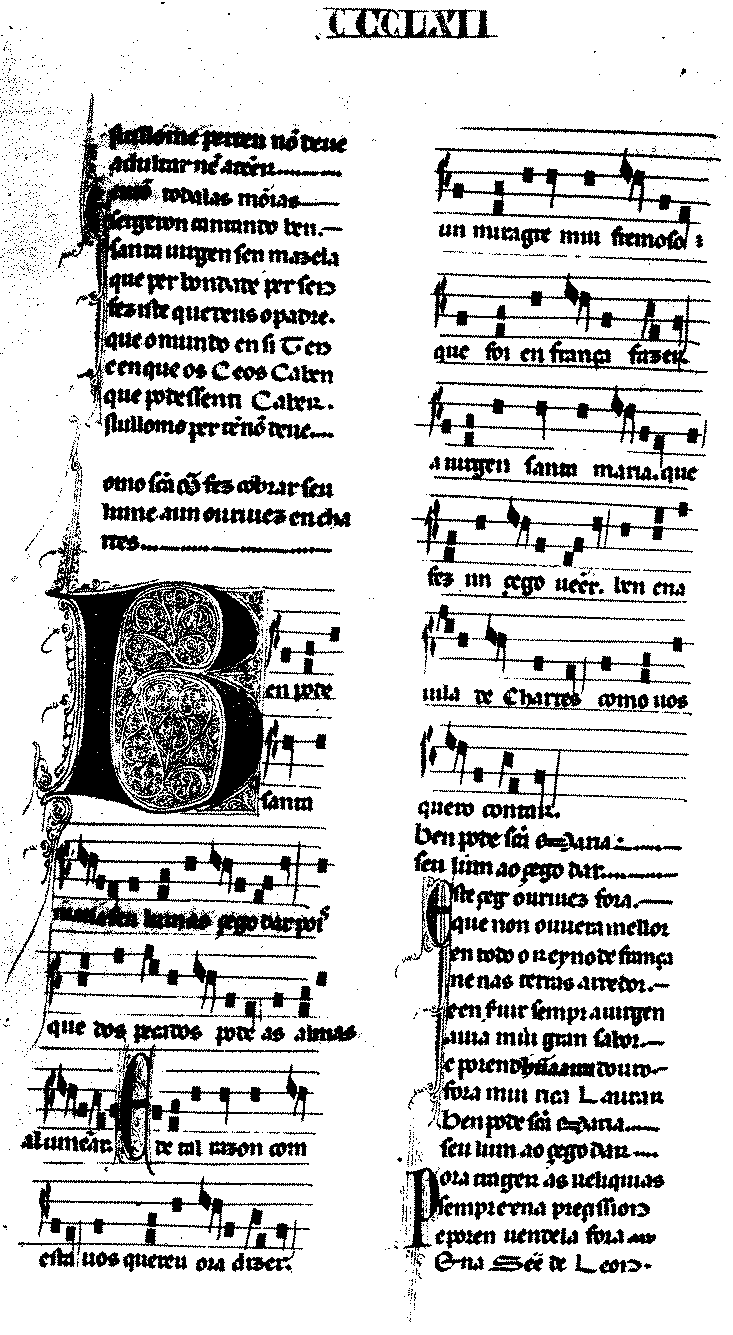 CCCLVII
stullome perren nõ deue
adultar nẽ atẽn
todalas mõias
seigeron cantando ben.
santa uirgen sen mazela
que per bondade per sen
fezisте queredeus o padre.
que o mundo en si Ten
e en que os Ceos Caben
que podessen ti Caber.
stullomo per rẽ nõ deue
omo scã Mã fez cobrar seu
lume a un ouriuez en cha
rtes
Ben pode
santa
maria seu lum ao çego dar pois
que dos pecados pode as almas
alumẽar. E de tal razon com
esta uos quereu ora dizer.
un miragre mui fremoso
que foi en frança fazer.
a uirgen santa maria. que
fez un çego ueer. ben ena
uila de Chartes como uos
quero contar.
Ben pode scã Maria
seu lum ao çego dar
Este çeg ouriuez fora.
que non ouuera mellor
en todo o reyno de frança
ne nas terras arredor.
e en seruir sempr a uirgen
auia mui gran sabor.
e porend
fora mui rica Laurar
Ben pode scã Maria
seu lum ao çego dar
Pora trager as reliquias
sempre ena preçisson
e poren uendela fora
Ena See de Leon.